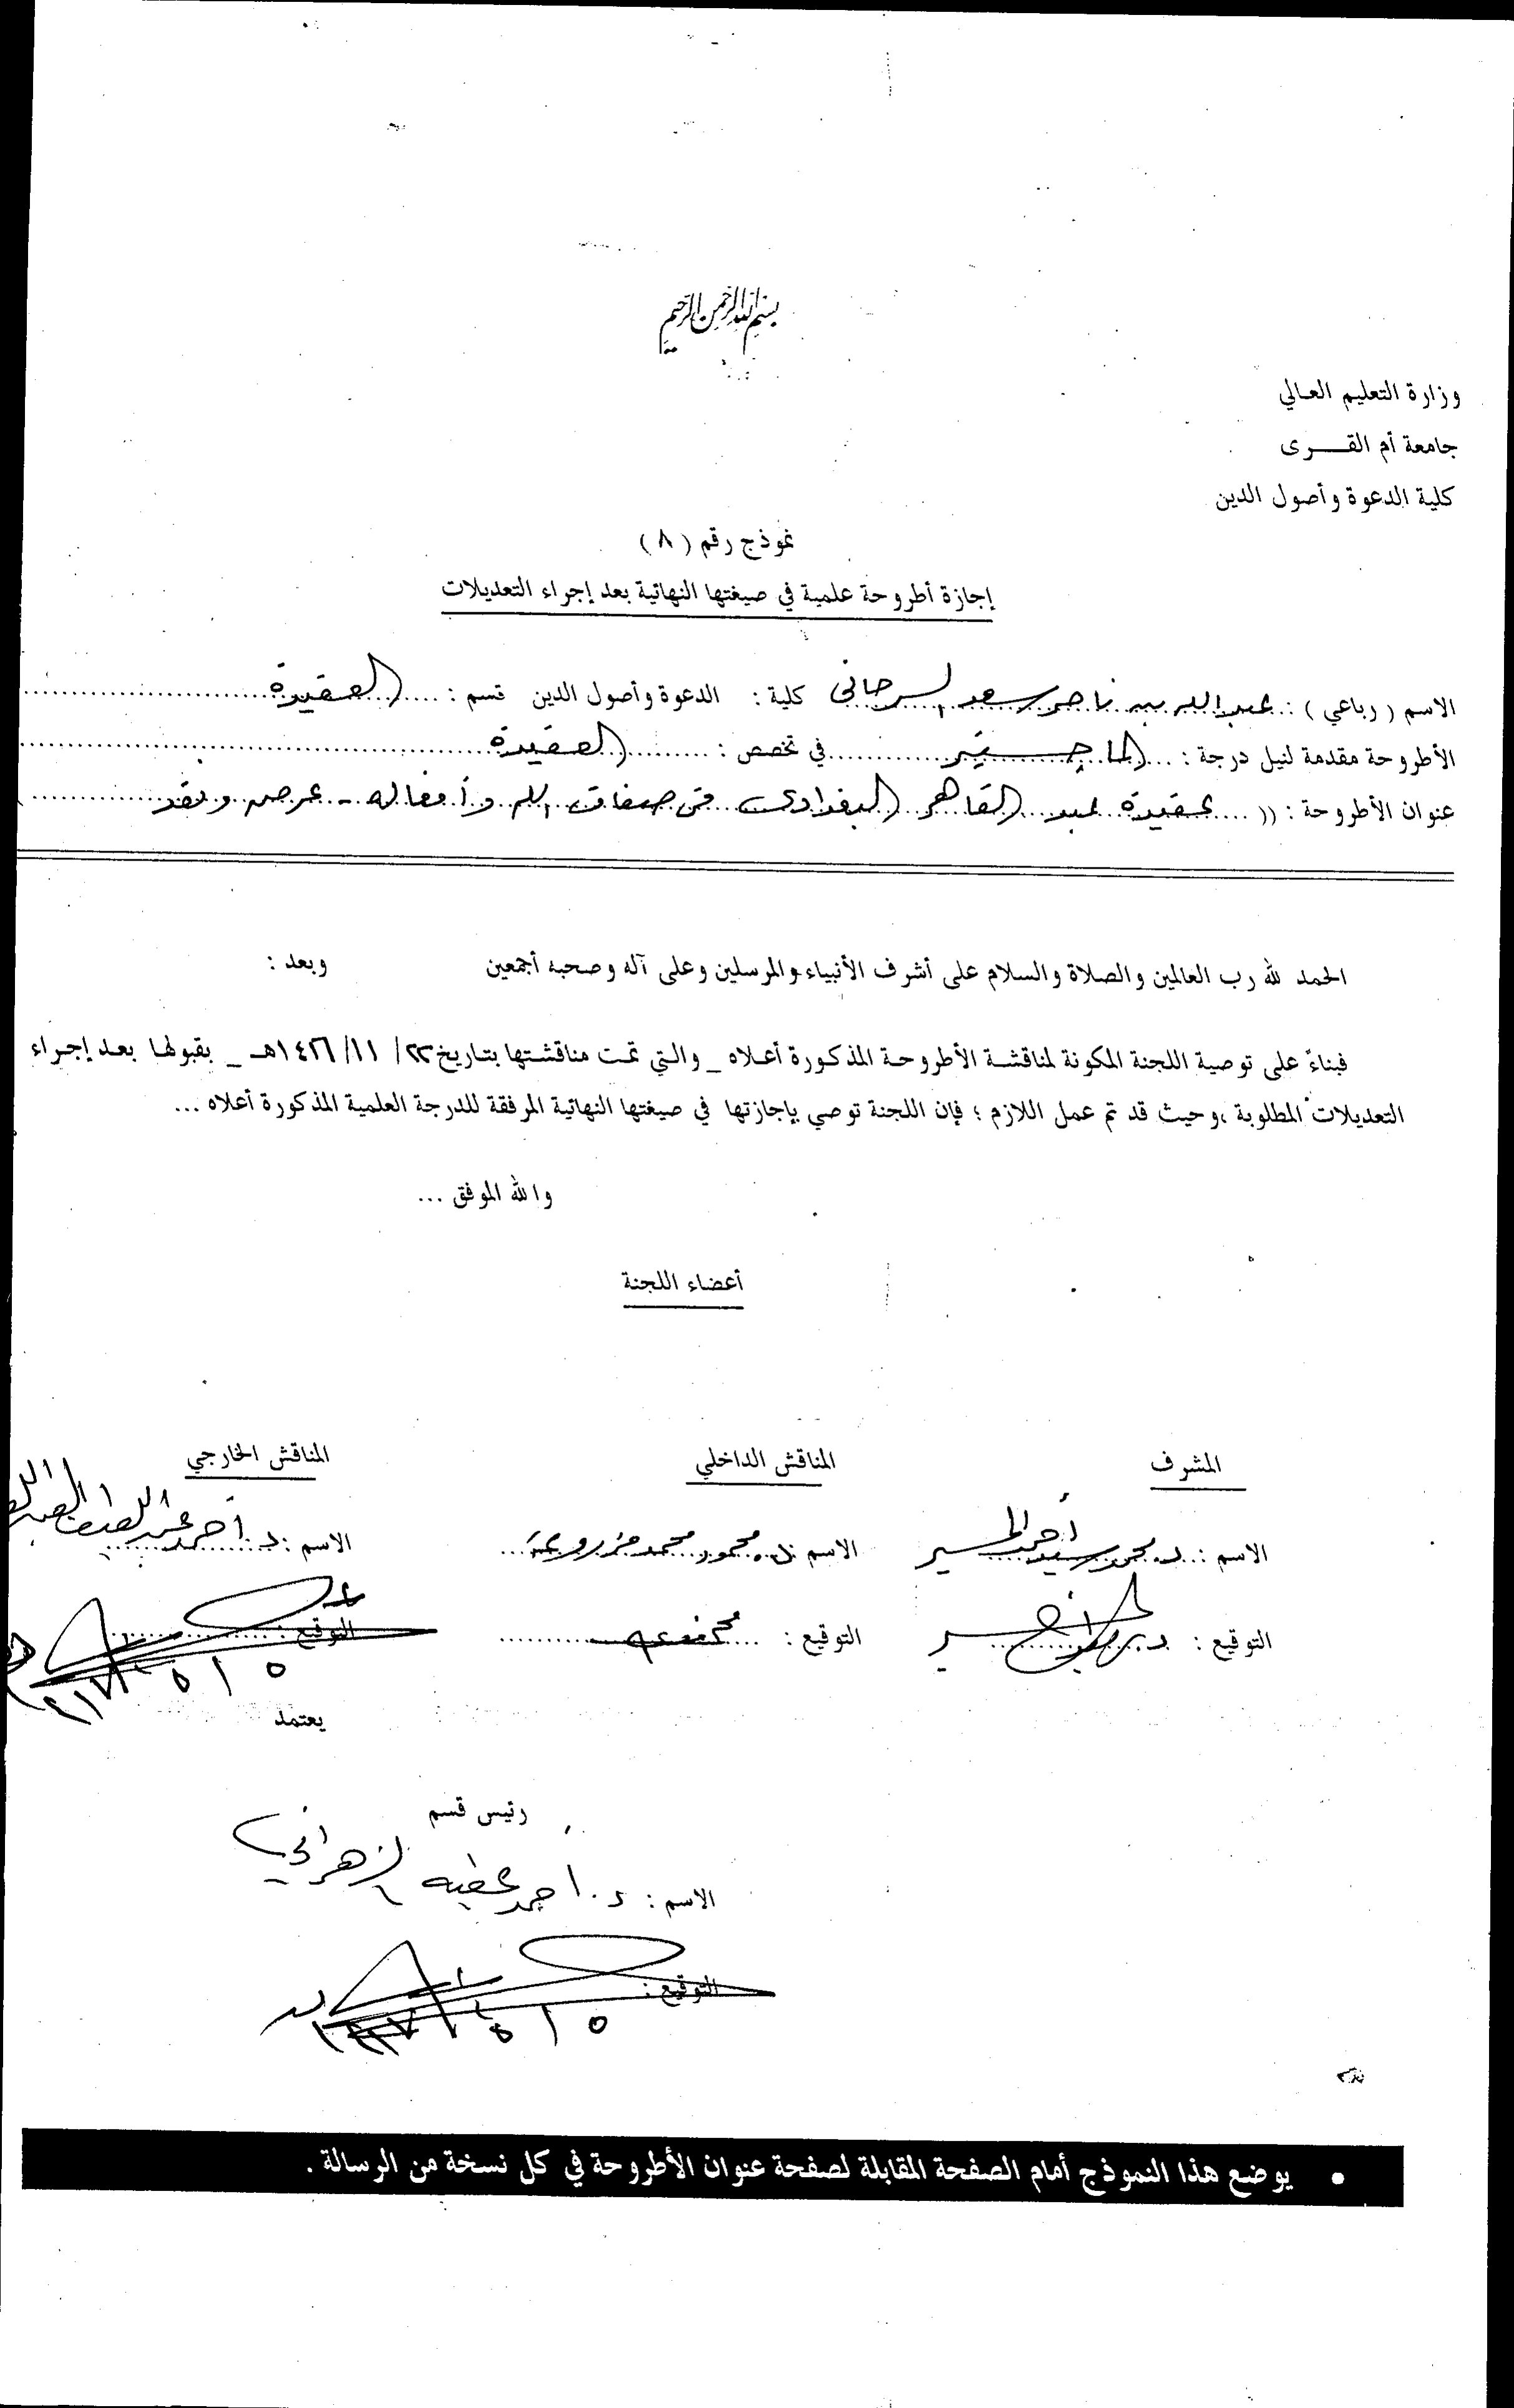 بسم الله الرحمن الرحيم
وزارة التعليم العالي
جامعة أم القـــرى
كلية الدعوة وأصول الدين
نموذج رقم (٨)
إجازة أطروحة علمية في صيغتها النهائية بعد إجراء التعديلات
الاسم (رباعي) : عبد الله بن ناصر سعد السرحاني كلية : الدعوة وأصول الدين قسم : العقيدة
الأطروحة مقدمة لنيل درجة : الماجستير في تخصص : العقيدة
عنوان الأطروحة : (( عقيدة عبد القاهر البغدادي في صفات الله وأفعاله - عرض ونقد
الحمد لله رب العالمين والصلاة والسلام على أشرف الأنبياء والمرسلين وعلى آله وصحبه أجمعين وبعد :
فبناءً على توصية اللجنة المكونة لمناقشة الأطروحة المذكورة أعلاه _ والتي تمت مناقشتها بتاريخ ٢٢/ ١١/ ١٤٢٦هـ _ بقبولها بعد إجراء
التعديلات المطلوبة ، وحيث قد تم عمل اللازم ؛ فإن اللجنة توصي بإجازتها في صيغتها النهائية المرفقة للدرجة العلمية المذكورة أعلاه ...
والله الموفق ...
أعضاء اللجنة
المشرف المناقش الداخلي المناقش الخارجي
الاسم : د. محمد سيد أحمد المسير الاسم : د. محمود محمد مزروعة الاسم : د. أحمد عبد اللطيف العبد اللطيف
التوقيع : التوقيع : التوقيع :
يعتمد
رئيس قسم
الاسم : د. أحمد عطية الزهراني
التوقيع :
• يوضع هذا النموذج أمام الصفحة المقابلة لصفحة عنوان الأطروحة في كل نسخة من الرسالة .